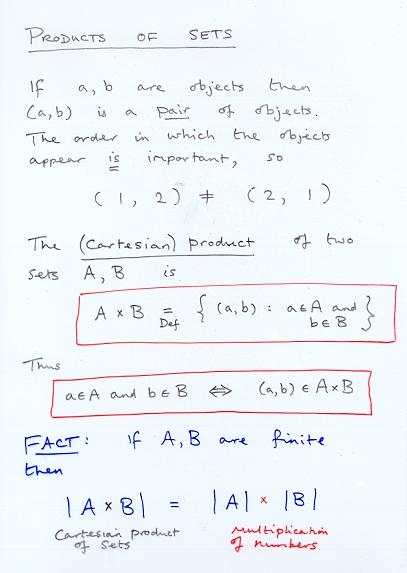 PRODUCTS OF SETS
If a, b are objects then
(a,b) is a pair of objects.
The order in which the objects
appear is important, so
(1, 2) ≠ (2, 1)
The (Cartesian) product of two
sets A, B is
A × B = { (a,b) : a ∈ A and
Def b ∈ B }
Thus
a ∈ A and b ∈ B ⇔ (a,b) ∈ A × B
FACT: If A, B are finite
then
|A × B| = |A| × |B|
Cartesian product multiplication
of sets of numbers